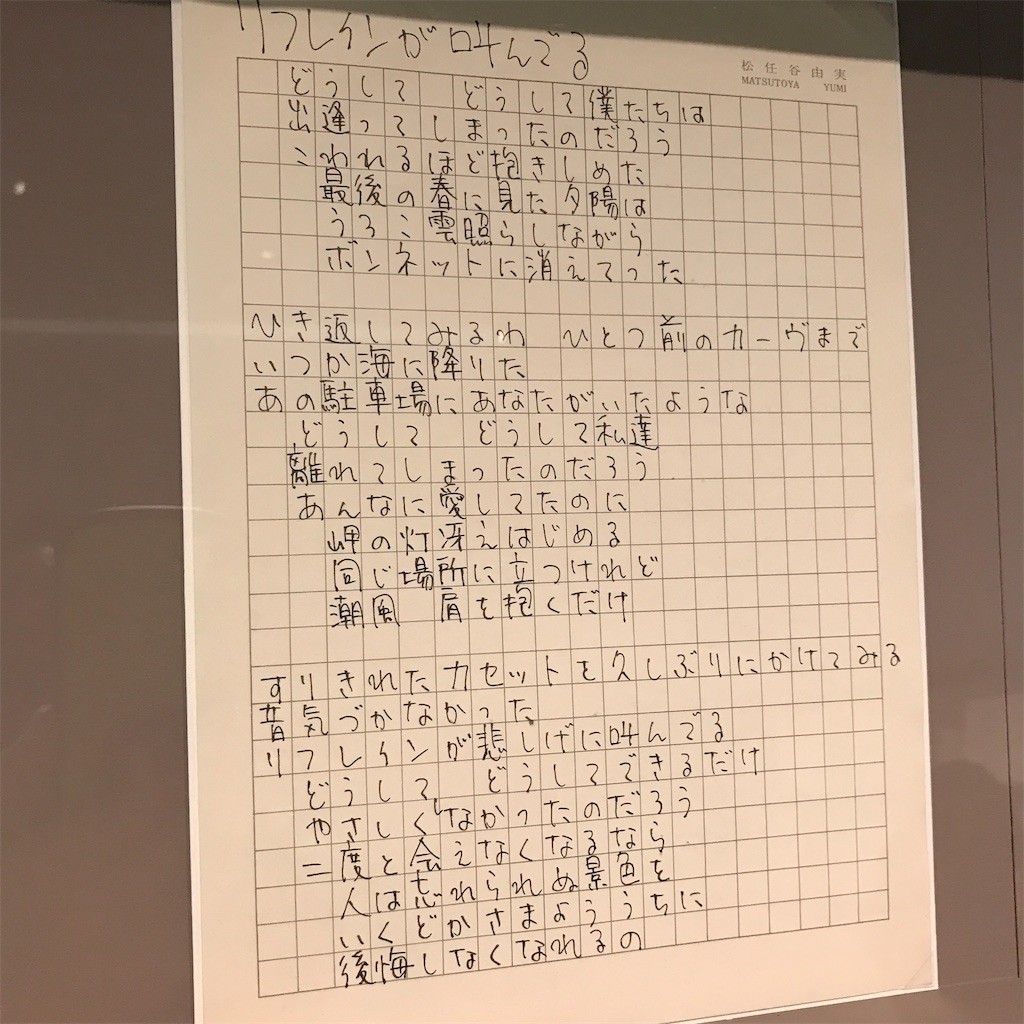 リフレインが叫んでる
松任谷由実
MATSUTOYA YUMI
どうして どうして僕たちは
出逢ってしまったのだろう
こわれるほど抱きしめた
最後の春に見た夕陽は
うろこ雲照らしながら
ボンネットに消えてった
ひき返してみるわ ひとつ前のカーヴまで
いつか海に降りた
あの駐車場にあなたがいたような
どうして どうして私達
離れてしまったのだろう
あんなに愛してたのに
岬の灯冴えはじめる
同じ場所に立つけれど
潮風 肩を抱くだけ
すりきれたカセットを久しぶりにかけてみる
昔気づかなかった
リフレインが悲しげに叫んでる
どうして どうしてできるだけ
やさしくしなかったのだろう
二度と会えなくなるなら
人は忘れられぬ景色を
いくどかさまよううちに
後悔しなくなれるの